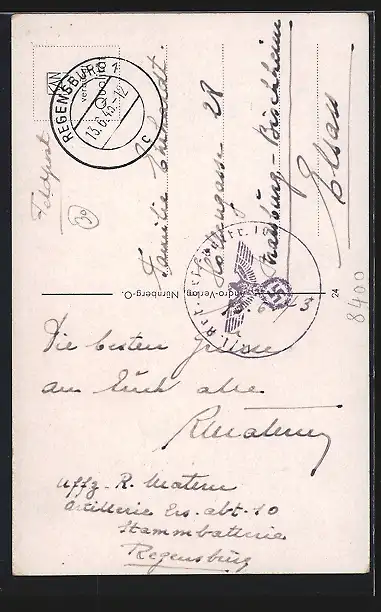 Feldpost
REGENSBURG 1
13.6.43.-12
c
Familie
28
Strassburg - Bischheim
Elsass
Nürnberg-O.
24
8400
Die besten Grüsse
an Euch alle
RMatern
Uffz. R. Matern
Artillerie Ers. abt. 10
Stammbatterie
Regensburg